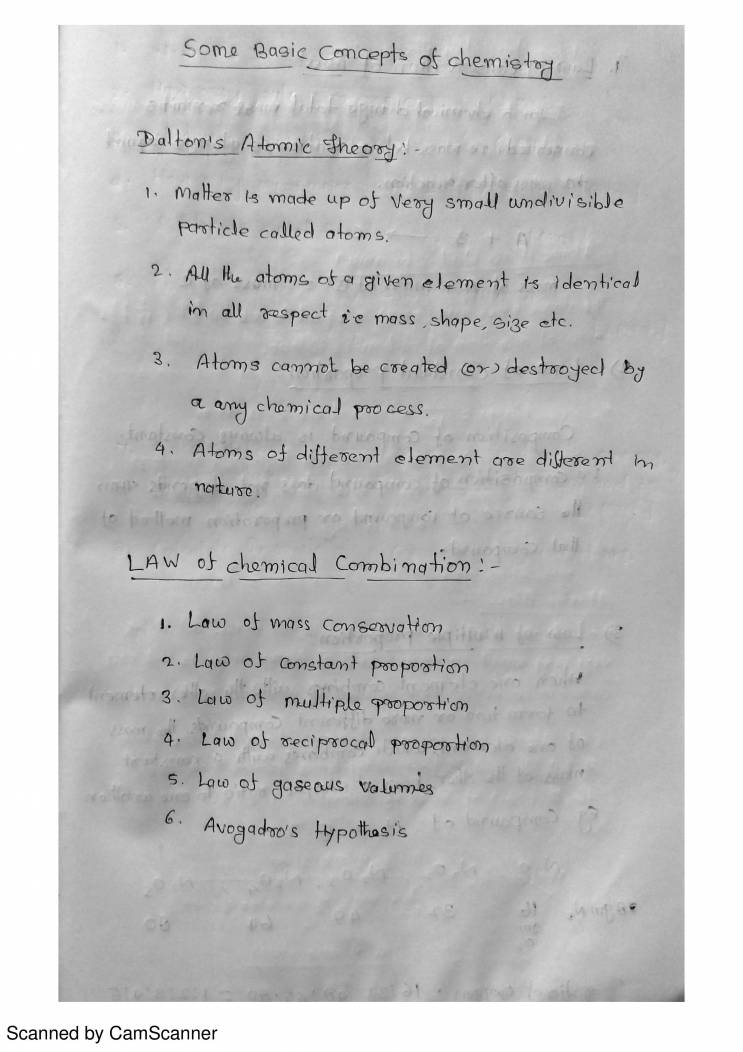 Some Basic Concepts of chemistry
Dalton's Atomic theory:-
1. Matter is made up of very small undivisible
particle called atoms.
2. All the atoms of a given element is identical
in all respect i.e mass, shape, size etc.
3. Atoms cannot be created (or) destroyed by
a any chemical process.
4. Atoms of different element are different in
nature.
LAW of chemical Combination:-
1. Law of mass conservation
2. Law of constant proportion
3. Law of multiple proportion
4. Law of reciprocal proportion
5. Law of gaseous volumes
6. Avogadro's Hypothesis
Scanned by CamScanner